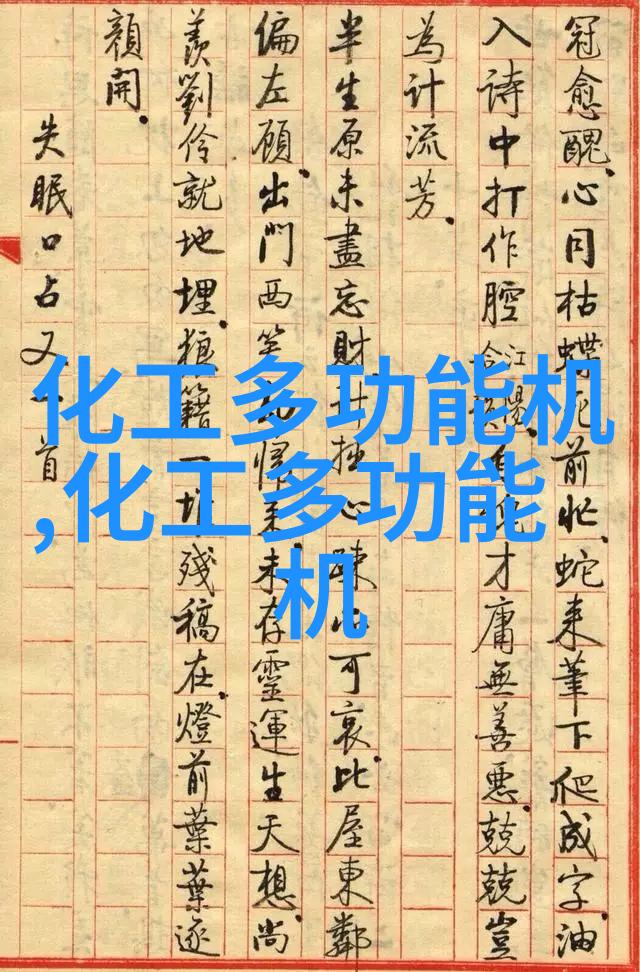 冠愈醜。心同枯蝶死前忙。蛇来筆下爬成字。油
入詩中打作腔。自才庸無善惡。兢兢豈
為計流芳。
半生原未盡忘財。計拙心疎可哀。比屋東鄰
偏左顧。出門西笑来。未存靈運生天想。尚
羨劉伶就地埋。狼籍一堆殘稿在。燈前葉葉逐
顏開。
失眠口占又一首
化工多功能机
,化工多功能
机